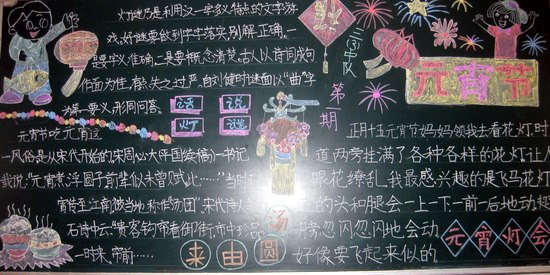 灯谜乃是利用汉一字多义特点的文字游
戏.好谜要做到字字落实.别解正确.一
是字义准确.二是要概念清楚.古人以诗词成句
作面为佳.有失之过严.自刘健时谜面以“曲”字
为第一要义.形同问答.
话 说
灯 谜
元宵节吃元宵这
一风俗是从宋代开始的.宋周必大《平园续稿》一书记
我说:“元宵煮浮圆子前辈似未曾赋此……”当时
宵传至江南被当地称作汤团”.宋代诗人
石诗中云:“贵客钩帘看御街.市中珍
一时来.帘前……
来由
汤
圆
三(3)中队
第 期
元宵节
正月十五元宵节妈妈领我去看花灯时
道两旁挂满了各种各样的花灯.让人
眼花缭乱.我最感兴趣的是飞马花灯
的头和腿会一上一下一前一后地动.
膀忽闪忽闪地会动
好像要飞起来似的.
元宵灯会